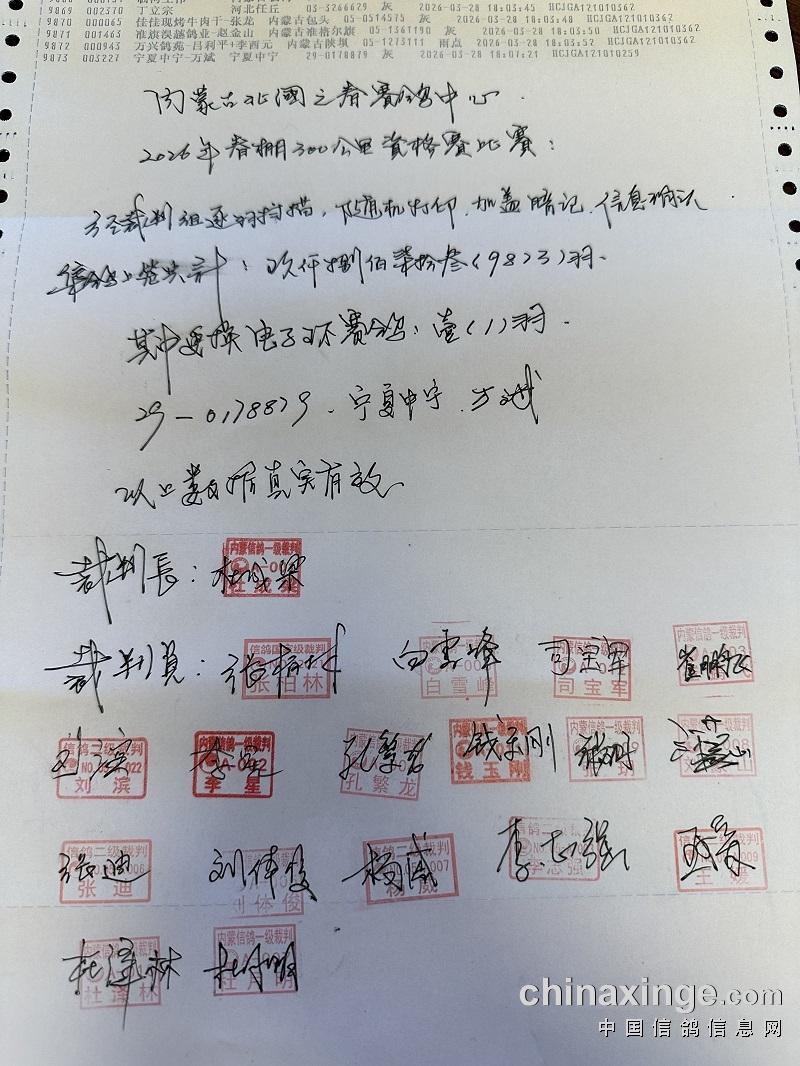 9869 002370 丁立宗 河北任丘 03-3266629 灰 2026-03-28 18:03:45 HCJGA121010362
9870 000065 佳佳现烤牛肉干-张龙 内蒙古包头 05-0514575 灰 2026-03-28 18:03:48 HCJGA121010362
9871 001463 准旗漠越鸽业-赵金山 内蒙古准格尔旗 05-1361190 灰 2026-03-28 18:03:50 HCJGA121010362
9872 000943 万兴鸽苑-吕利平+李西元 内蒙古陕坝 05-1273111 雨点 2026-03-28 18:03:52 HCJGA121010362
9873 003227 宁夏中宁-万斌 宁夏中宁 29-0178879 灰 2026-03-28 18:07:21 HCJGA121010259
内蒙古北國之春賽鸽中心.
2026年春棚300公里资格赛比赛:
经裁判组逐羽扫描,随机打印,加盖暗记,信息确认
集鸽上笼共计:玖仟捌佰柒拾叁(9873)羽.
其中更换电子环赛鸽:壹(1)羽.
29-0178879.宁夏中宁.万斌
以上数据真实有效
裁判長:杜成果
内蒙信鸽一级裁判
裁判員:张柏林 白雪峰 司宝军
信鸽国家级裁判 内蒙信鸽一级裁判
张柏林 白雪峰 司宝军
刘滨 李星 孔繁龙 钱玉刚
信鸽二级裁判 内蒙信鸽一级裁判
刘滨 李星 孔繁龙 钱玉刚
张迪 刘体俊 杨威 李志强
信鸽二级裁判
张迪 刘体俊 李志强
杜泽林 杜月明
内蒙信鸽一级裁判
杜泽林
chinaxinge.com
中国信鸽信息网